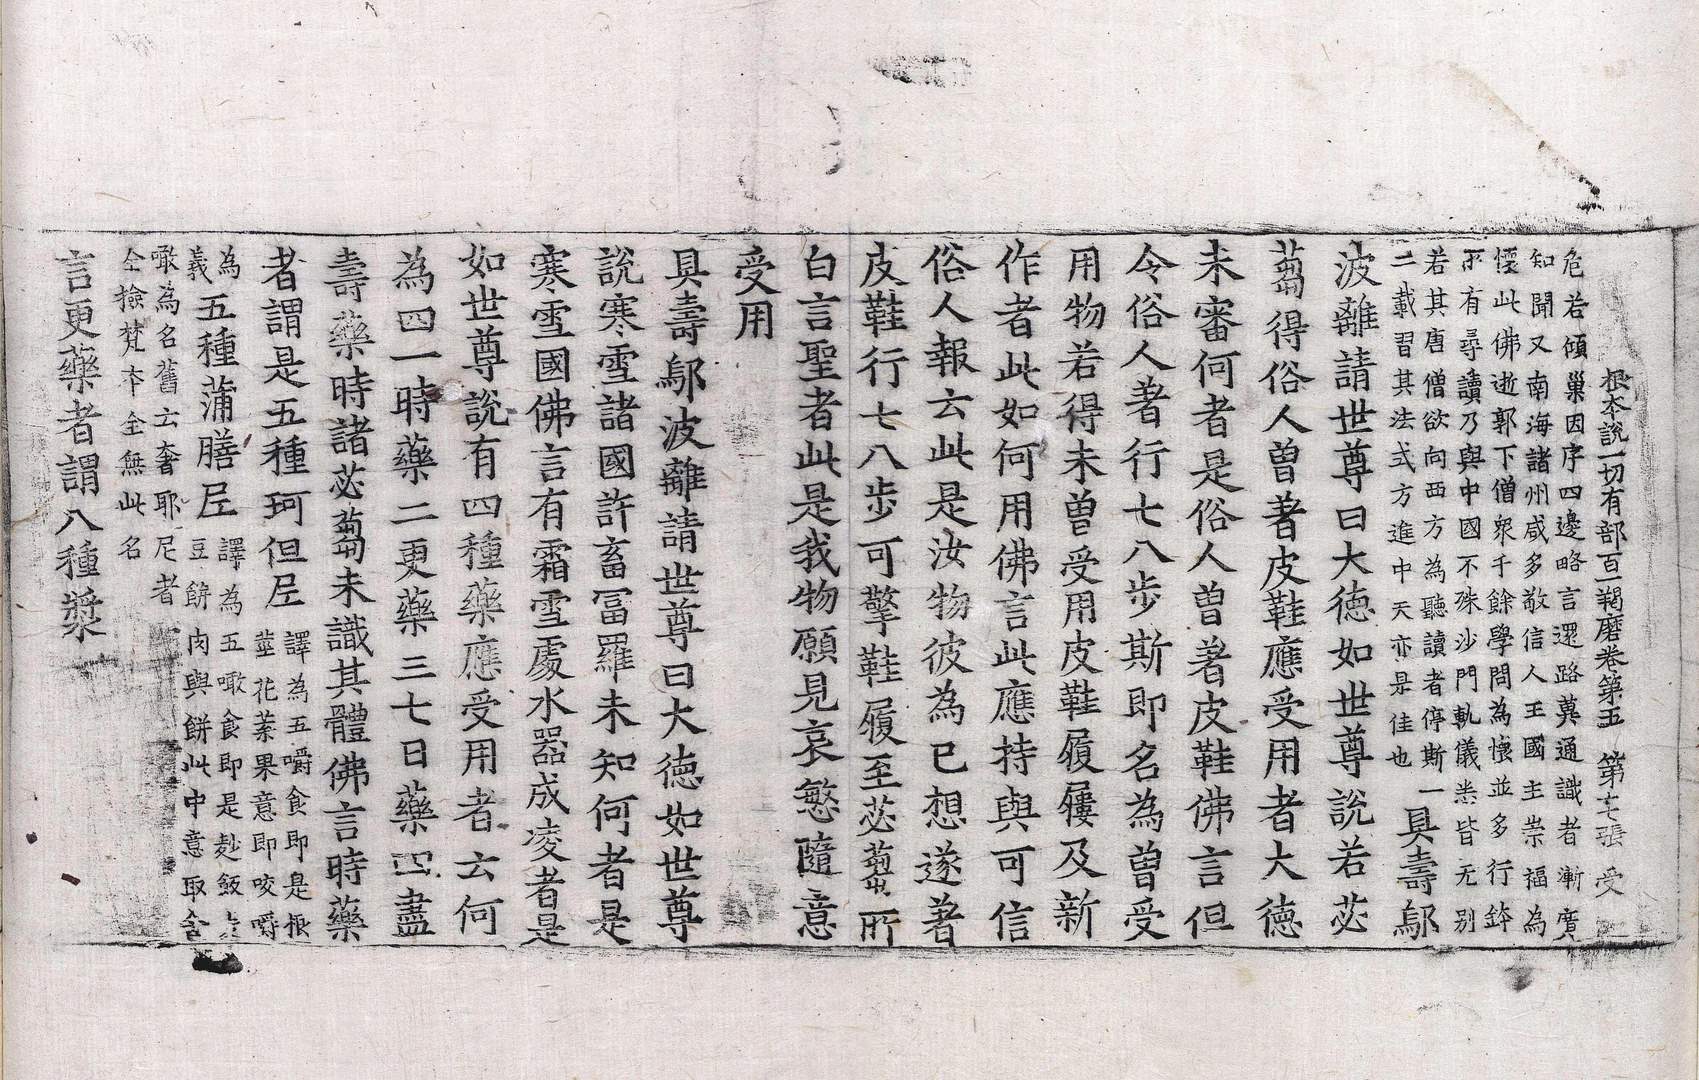 根本說一切有部百一羯磨卷第五 第七張 受
危若傾巢因序四邊略言還路冀通識者漸廣
知聞又南海諸州咸多敬信人王國主崇福為
懷此佛逝郭下僧衆千餘學問為懷並多行鉢
所有尋讀乃與中國不殊沙門軌儀悉皆无別
若其唐僧欲向西方為聽讀者停斯一
二載習其法式方進中天亦是佳也
具壽鄔
波離請世尊曰大德如世尊說若苾
蒭得俗人曾著皮鞋應受用者大德
未審何者是俗人曾著皮鞋佛言但
令俗人著行七八步斯即名為曾受
用物若得未曾受用皮鞋履屨及新
作者此如何用佛言此應持與可信
俗人報云此是汝物彼為已想遂著
皮鞋行七八步可擎鞋履至苾蒭所
白言聖者此是我物願見哀愍隨意
受用
具壽鄔波離請世尊曰大德如世尊
說寒雪諸國許畜冨羅未知何者是
寒雪國佛言有霜雪處水器成凌者是
如世尊說有四種藥應受用者云何
為四一時藥二更藥三七日藥四盡
壽藥時諸苾蒭未識其體佛言時藥
者謂是五種珂但尼
譯為五嚼食即是根
莖花葉果意即咬嚼
為
義
五種蒲膳尼
譯為五噉食即是麨飯
豆餅肉與餅此中意取含
噉為名舊云奢耶尼者
全撿梵本全無此名
言更藥者謂八種漿